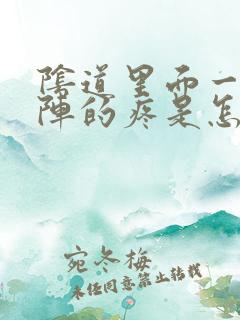 陰道里面一
陣的疼是怎
宛冬梅
未经同意禁止转载